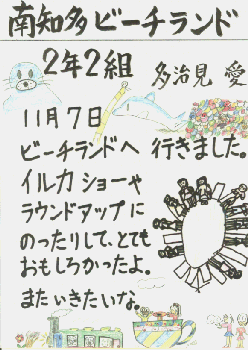 南知多ビーチランド
2年2組 多治見 愛
11月7日
ビーチランドへ 行きました。
イルカショーや
ラウンドアップに
のったりして、とても
おもしろかったよ。
またいきたいな。